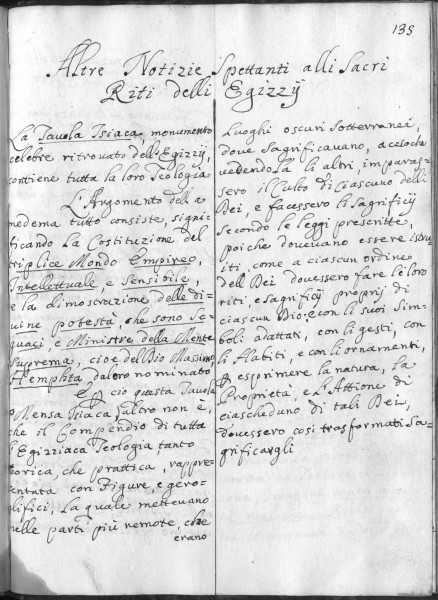 135
Altre Notizie Spettanti alli Sacri
Riti delli Egizzij
La Tavola Isiaca monumento
celebre ritrovato delli Egizzij,
contiene tutta la loro Teologia
L'Argomento della
medema tutto consiste, signi-
ficando La Costituzione del
triplice Mondo Empireo,
Intellettuale e Sensibile,
e la dimostrazione delle di-
uine potestà, che sono Se-
guaci, e Ministre della Mente
Suprema, cioè del Dio Massimo,
Hemphta da loro nominato
Per ciò questa Tavola
o Mensa Isiaca, altro non è,
che il Compendio di tutta
l'Egizziaca Teologia tanto
teorica, che prattica, rappre-
sentata con Figure, e gero-
glifici, La quale metteuano
nelle parti più remote, che
erano
Luoghi oscuri Sotterranei,
doue Sagrificauano, acciochè
vedendoLa li altri, imparas-
sero il Culto di ciascuno delli
Dei, e facessero li Sagrificij
Secondo le leggi prescritte,
poiche doueuano essere istru-
iti, come a ciascun ordine
dell Dei douessero fare le loro
riti, e sagrificij proprij di
ciascun Dio; e con li suoi Sim-
boli adattati, con li gesti, con
li Habiti, e con li ornamenti,
per esprimere la natura, La
Proprietà, e L'Attione di
ciascheduno di tali Dei,
douessero così trasformati Sa-
grificargli